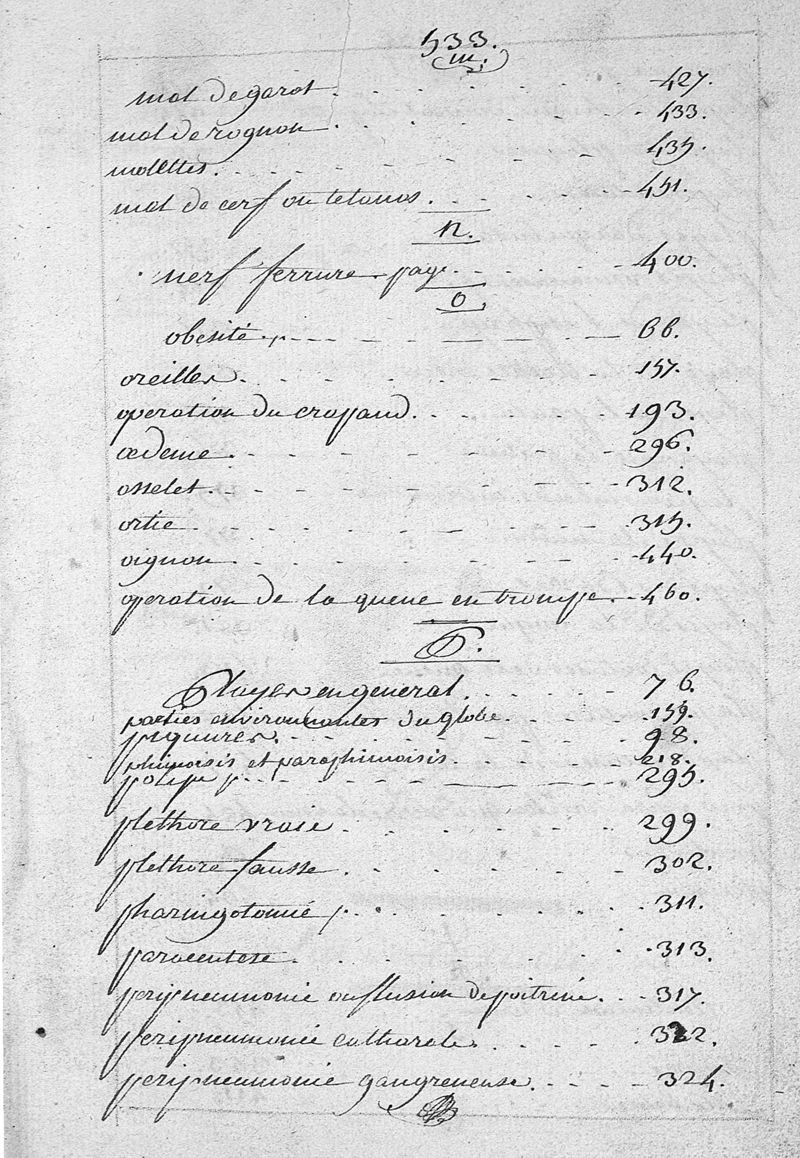 533.
m.
mal de garot . . . . . . 427.
mal de rognon . . . . . . 433.
molettes . . . . . . 435.
mal de cerf ou tetanos . . . . . 451.
n.
nerf ferrure page . . . . . 400.
O.
obesité . . . . . . 66.
oreilles . . . . . . 157.
operation du crapaud . . . . . 193.
œdeme . . . . . . 296.
osselet . . . . . . 312.
ortie . . . . . . 315.
oignon . . . . . . 440.
operation de la queue en trompe . . 460.
P.
Playes en general . . . . . 76.
parties environnantes du globe . . . 159.
piquures . . . . . . 98.
phimosis et paraphimosis . . . . 218.
polipe . . . . . . 295.
plethore vraie . . . . . . 299.
plethore fausse . . . . . . 302.
pharingotomie . . . . . . 311.
paracentese . . . . . . 313.
peripneumonie ou fluxion de poitrine . . 317.
peripneumonie catharale . . . . 322.
peripneumonie gangreneuse . . . . 324.